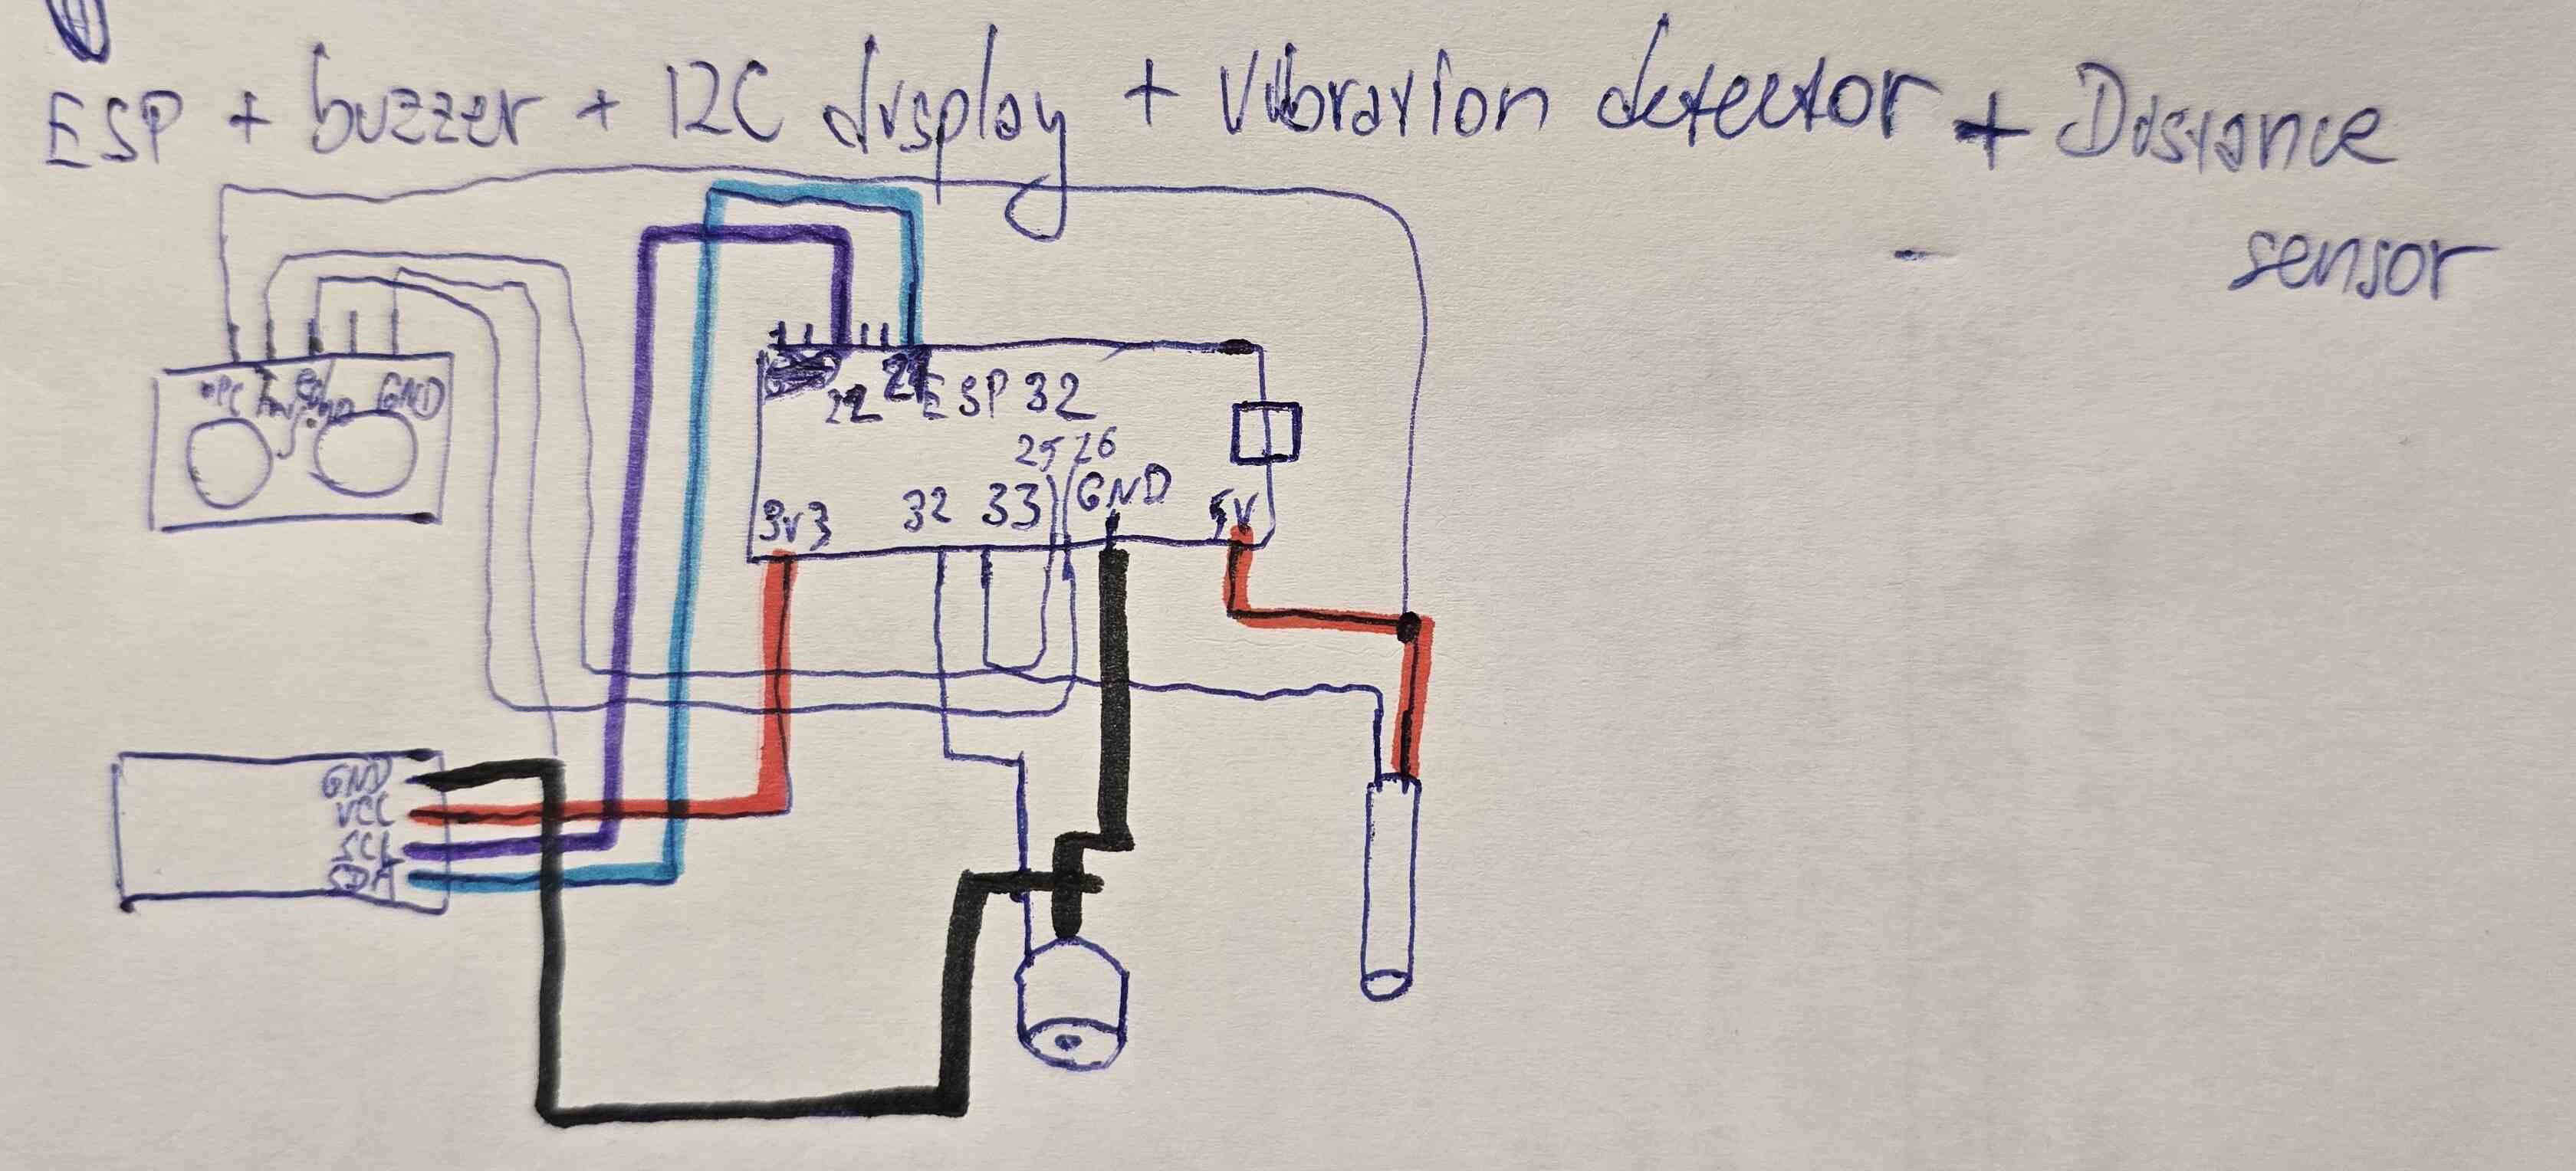 ESP + buzzer + I2C display + Vibration detector + Distance
sensor
GND
22 21 ESP 32
25 26
3v3 32 33 GND 5V
GND
VCC
SCL
SDA